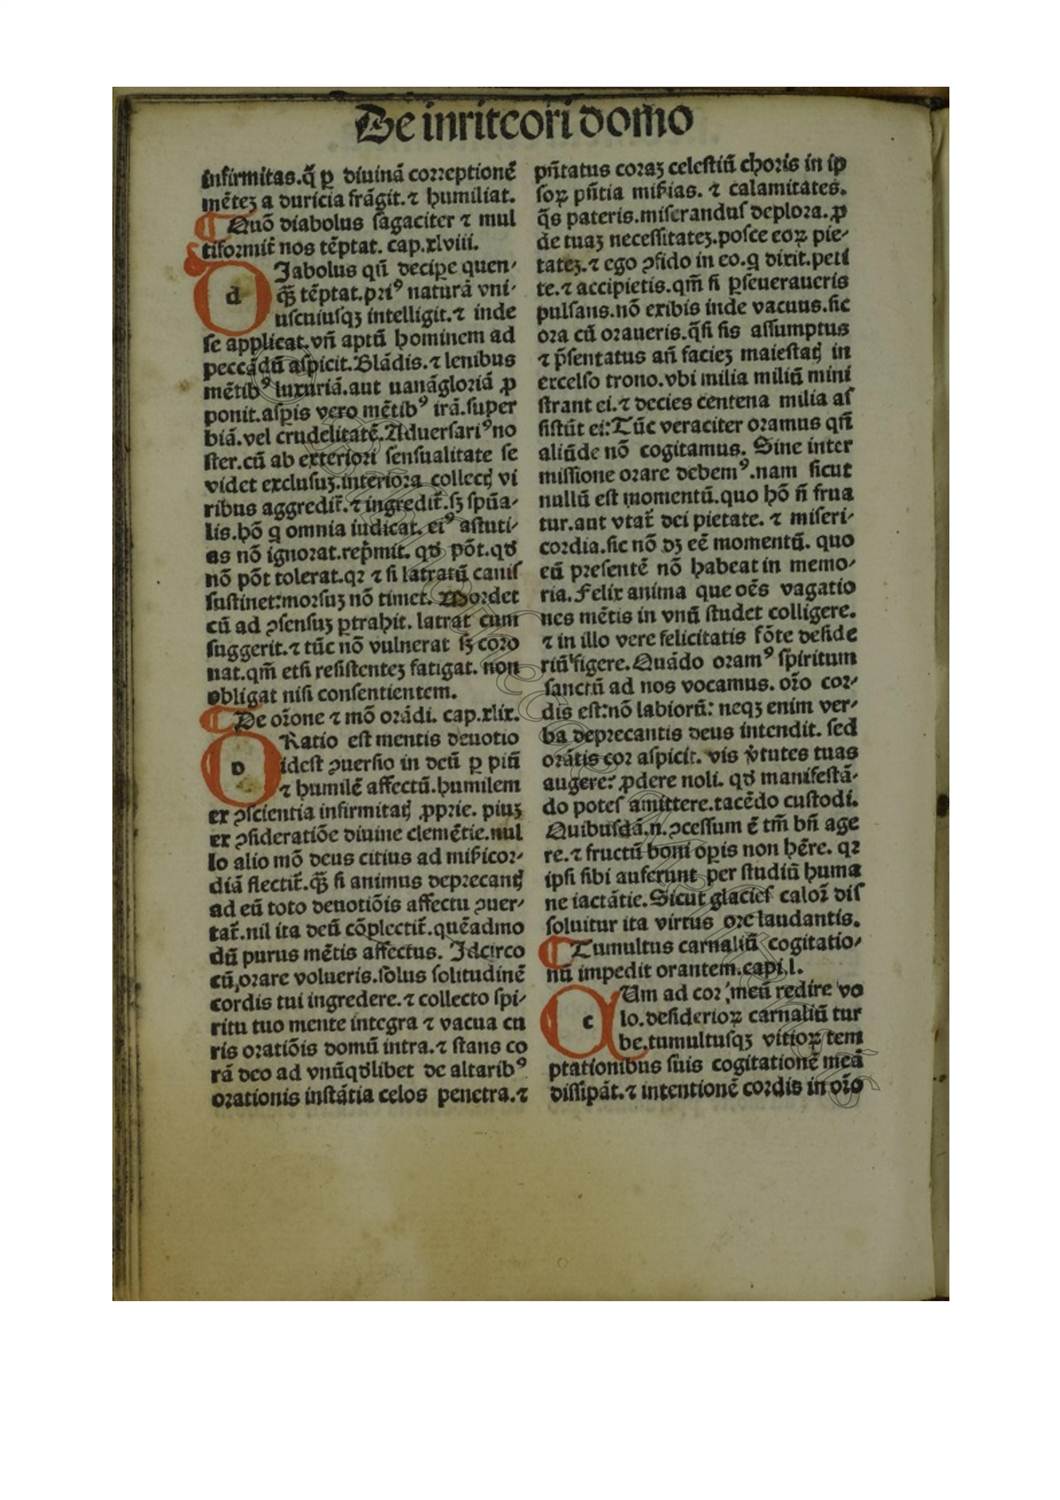 De inriteori domo
infirmitas.q̄ ꝑ diuinā correptionē
mēteꝫ a duricia frāgit.⁊ humiliat.
¶ Quō diabolus sagaciter ⁊ mul
tiformit̄ nos tēptat. cap.xlviii.
d Iabolus qn̄ decipe quen-
q̄ꝫ tēptat.priꝰ naturā vni-
uscuiusqꝫ intelligit.⁊ inde
se applicat.vn̄ aptū hominem ad
peccādū aspicit.Blādis.⁊ lenibus
mētibꝰ luxuriā.aut uanāgloriā ꝓ
ponit.aspis vero mētibꝰ irā.super
biā.vel crudelitatē.Aduersariꝰ no
ster.cū ab exteriori sensualitate se
videt exclusuꝫ.interiora collectꝭ vi
ribus aggredit̄.⁊ ingredit̄.sꝫ spūa-
lis.hō q omnia iudicat. eiꝰ astuti-
as nō ignorat.rep̄mit. qđ pōt.qđ
nō pōt tolerat.qꝛ ⁊ si latratū canis
sustinet:morsuꝫ nō timet. Mordet
cū ad ꝯsensuꝫ ꝑtrahit. latrat cum
suggerit.⁊ tūc nō vulnerat sꝫ coro
nat.qm̄ etsi resistenteꝫ fatigat. non
obligat nisi consentientem.
¶ De or̄one ⁊ mō orādi. cap.xlix.
o Ratio est mentis deuotio
idest ꝯuersio in deū ꝑ piū
⁊ humilē affectū.humilem
ex ꝯscientia infirmitatꝭ ꝓprie. piuꝫ
ex ꝯsideratiōe diuine clemētie.nul
lo alio mō deus citius ad mis̄icor-
diā flectit̄.q̄ꝫ si animus deprecantꝭ
ad eū toto deuotiōis affectu ꝯuer-
tat̄.nil ita deū cōplectit̄.quēadmo
dū purus mētis affectus. Idcirco
cū orare volueris.solus solitudinē
cordis tui ingredere.⁊ collecto spi-
ritu tuo mente integra ⁊ vacua cu
ris oratiōis domū intra.⁊ stans co
rā deo ad vnūqđlibet de altaribꝰ
orationis instātia celos penetra.⁊
pn̄tatus coraꝫ celestiū choris in ip
soꝝ pn̄tia mis̄ias. ⁊ calamitates.
q̄s pateris.miserandus deplora.ꝓ
de tuaꝫ necessitateꝫ.posce eoꝝ pie-
tateꝫ.⁊ ego ꝯfido in eo.q dixit.peti
te.⁊ accipietis.qm̄ si ꝑseueraueris
pulsans.nō exibis inde vacuus.sic
ora cū oraueris.q̄si sis assumptus
⁊ p̄sentatus an̄ facieꝫ maiestatꝭ in
excelso trono.vbi milia miliū mini
strant ei.⁊ decies centena milia as
sistūt ei:Tūc veraciter oramus qn̄
aliūde nō cogitamus. Sine inter
missione orare debemꝰ.nam sicut
nullū est momentū.quo hō n̄ frua
tur.aut vtat̄ dei pietate. ⁊ miseri-
cordia.sic nō dꝫ eē momentū. quo
eū presentē nō habeat in memo-
ria.Felix anima que oēs vagatio
nes mētis in vnū studet colligere.
⁊ in illo vere felicitatis fōte deside
riū figere.Quādo oramꝰ spiritum
sanctū ad nos vocamus. or̄o cor-
dis est:nō labiorū: neqꝫ enim ver-
ba deprecantis deus intendit. sed
orātis cor aspicit. vis v̄tutes tuas
augere: ꝓdere noli. qđ manifestā-
do potes amittere.tacēdo custodi.
Quibusdā.n.ꝯcessum ē tm̄ bn̄ age
re.⁊ fructū boni oꝑis non hēre. qꝛ
ipsi sibi auferunt per studiū huma
ne iactātie.Sicut glacies calor̄ dis
soluitur ita virtus ore laudantis.
¶ Tumultus carnaliū cogitatio-
nū impedit orantem.capi.l.
c Um ad cor meū redire vo
lo.desiderioꝝ carnaliū tur
be.tumultusqꝫ vitioꝝ tem
ptationibus suis cogitationē meā
dissipāt.⁊ intentionē cordis in or̄o